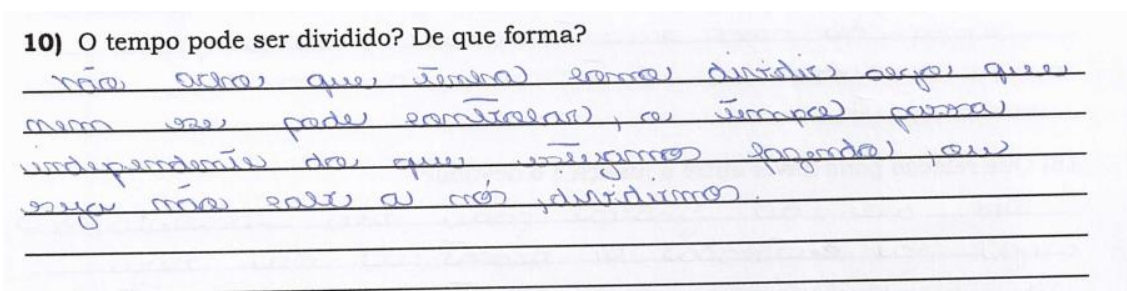 10) O tempo pode ser dividido? De que forma?
não acho que tenha como dividir algo que
nem se pode controlar, o tempo passa
independente do que estejamos fazendo, ou
seja não cabe a nós dividirmos.